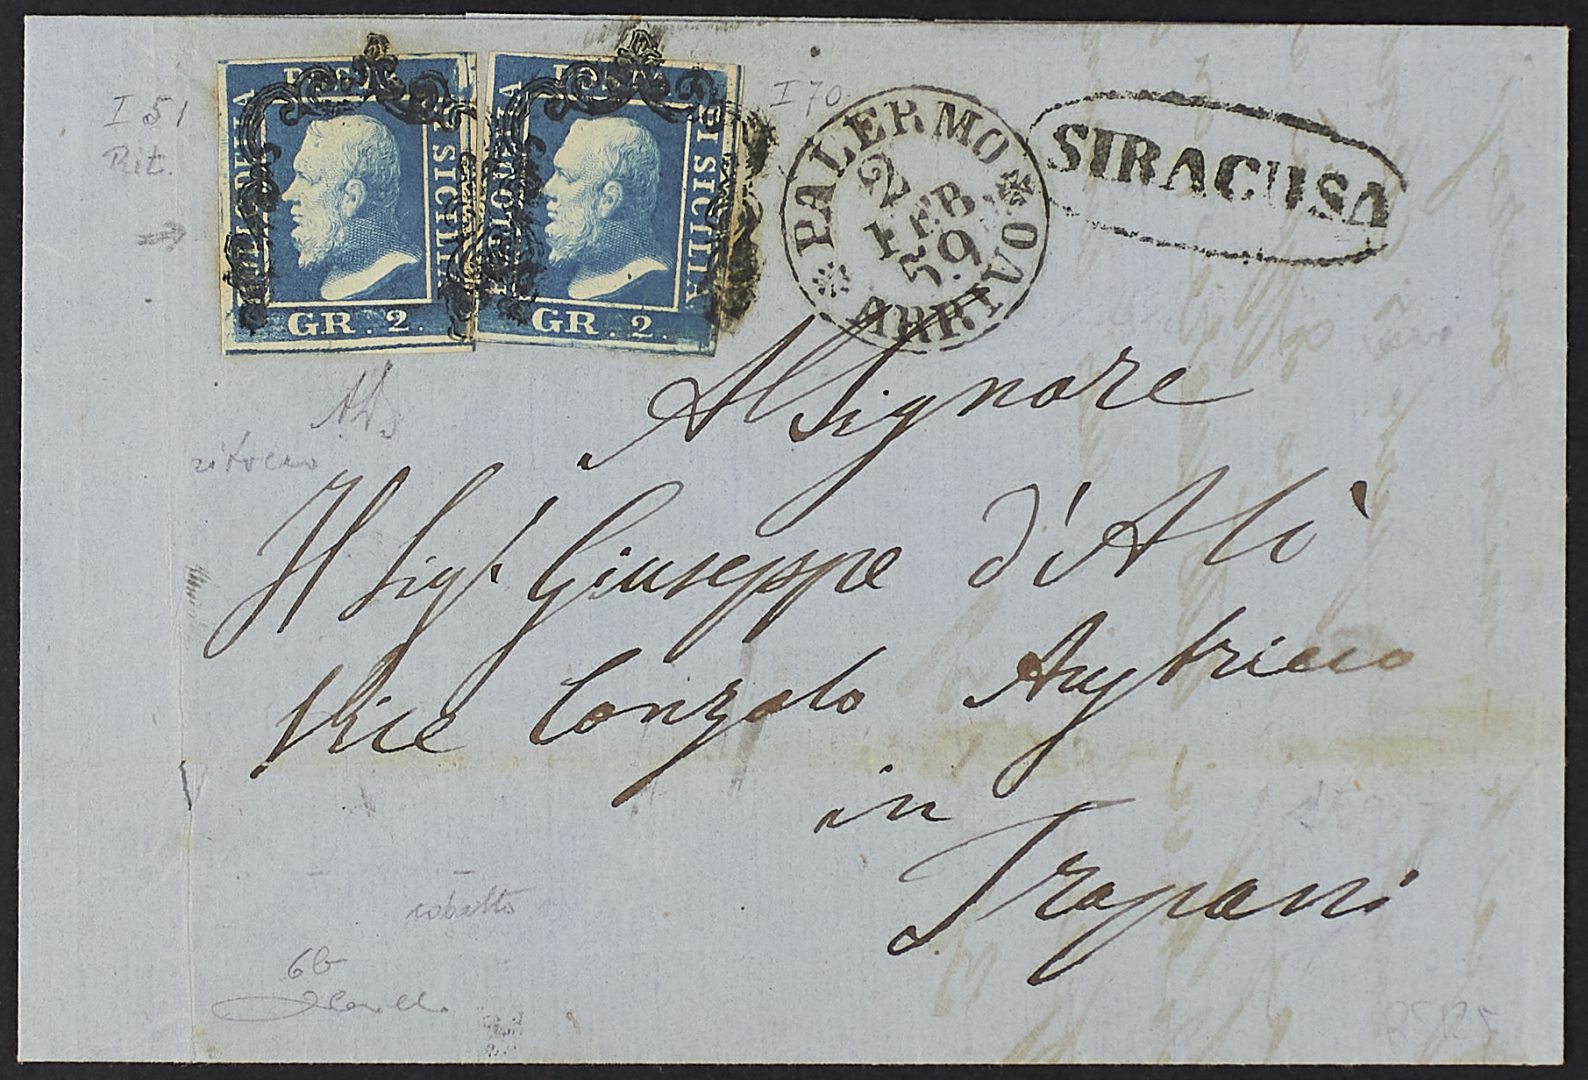 I 51
Rit.
BOLLO DELLA POSTA DI SICILIA
GR. 2.
BOLLO DELLA POSTA DI SICILIA
GR. 2.
I 70
PALERMO
2
FEB.
59
ARRIVO
SIRACUSA
Al Signore
ritocco
Il Sigr. Giuseppe d'Alì
Vice Conzolo Austriaco
in
Trapani
cobalto
6b